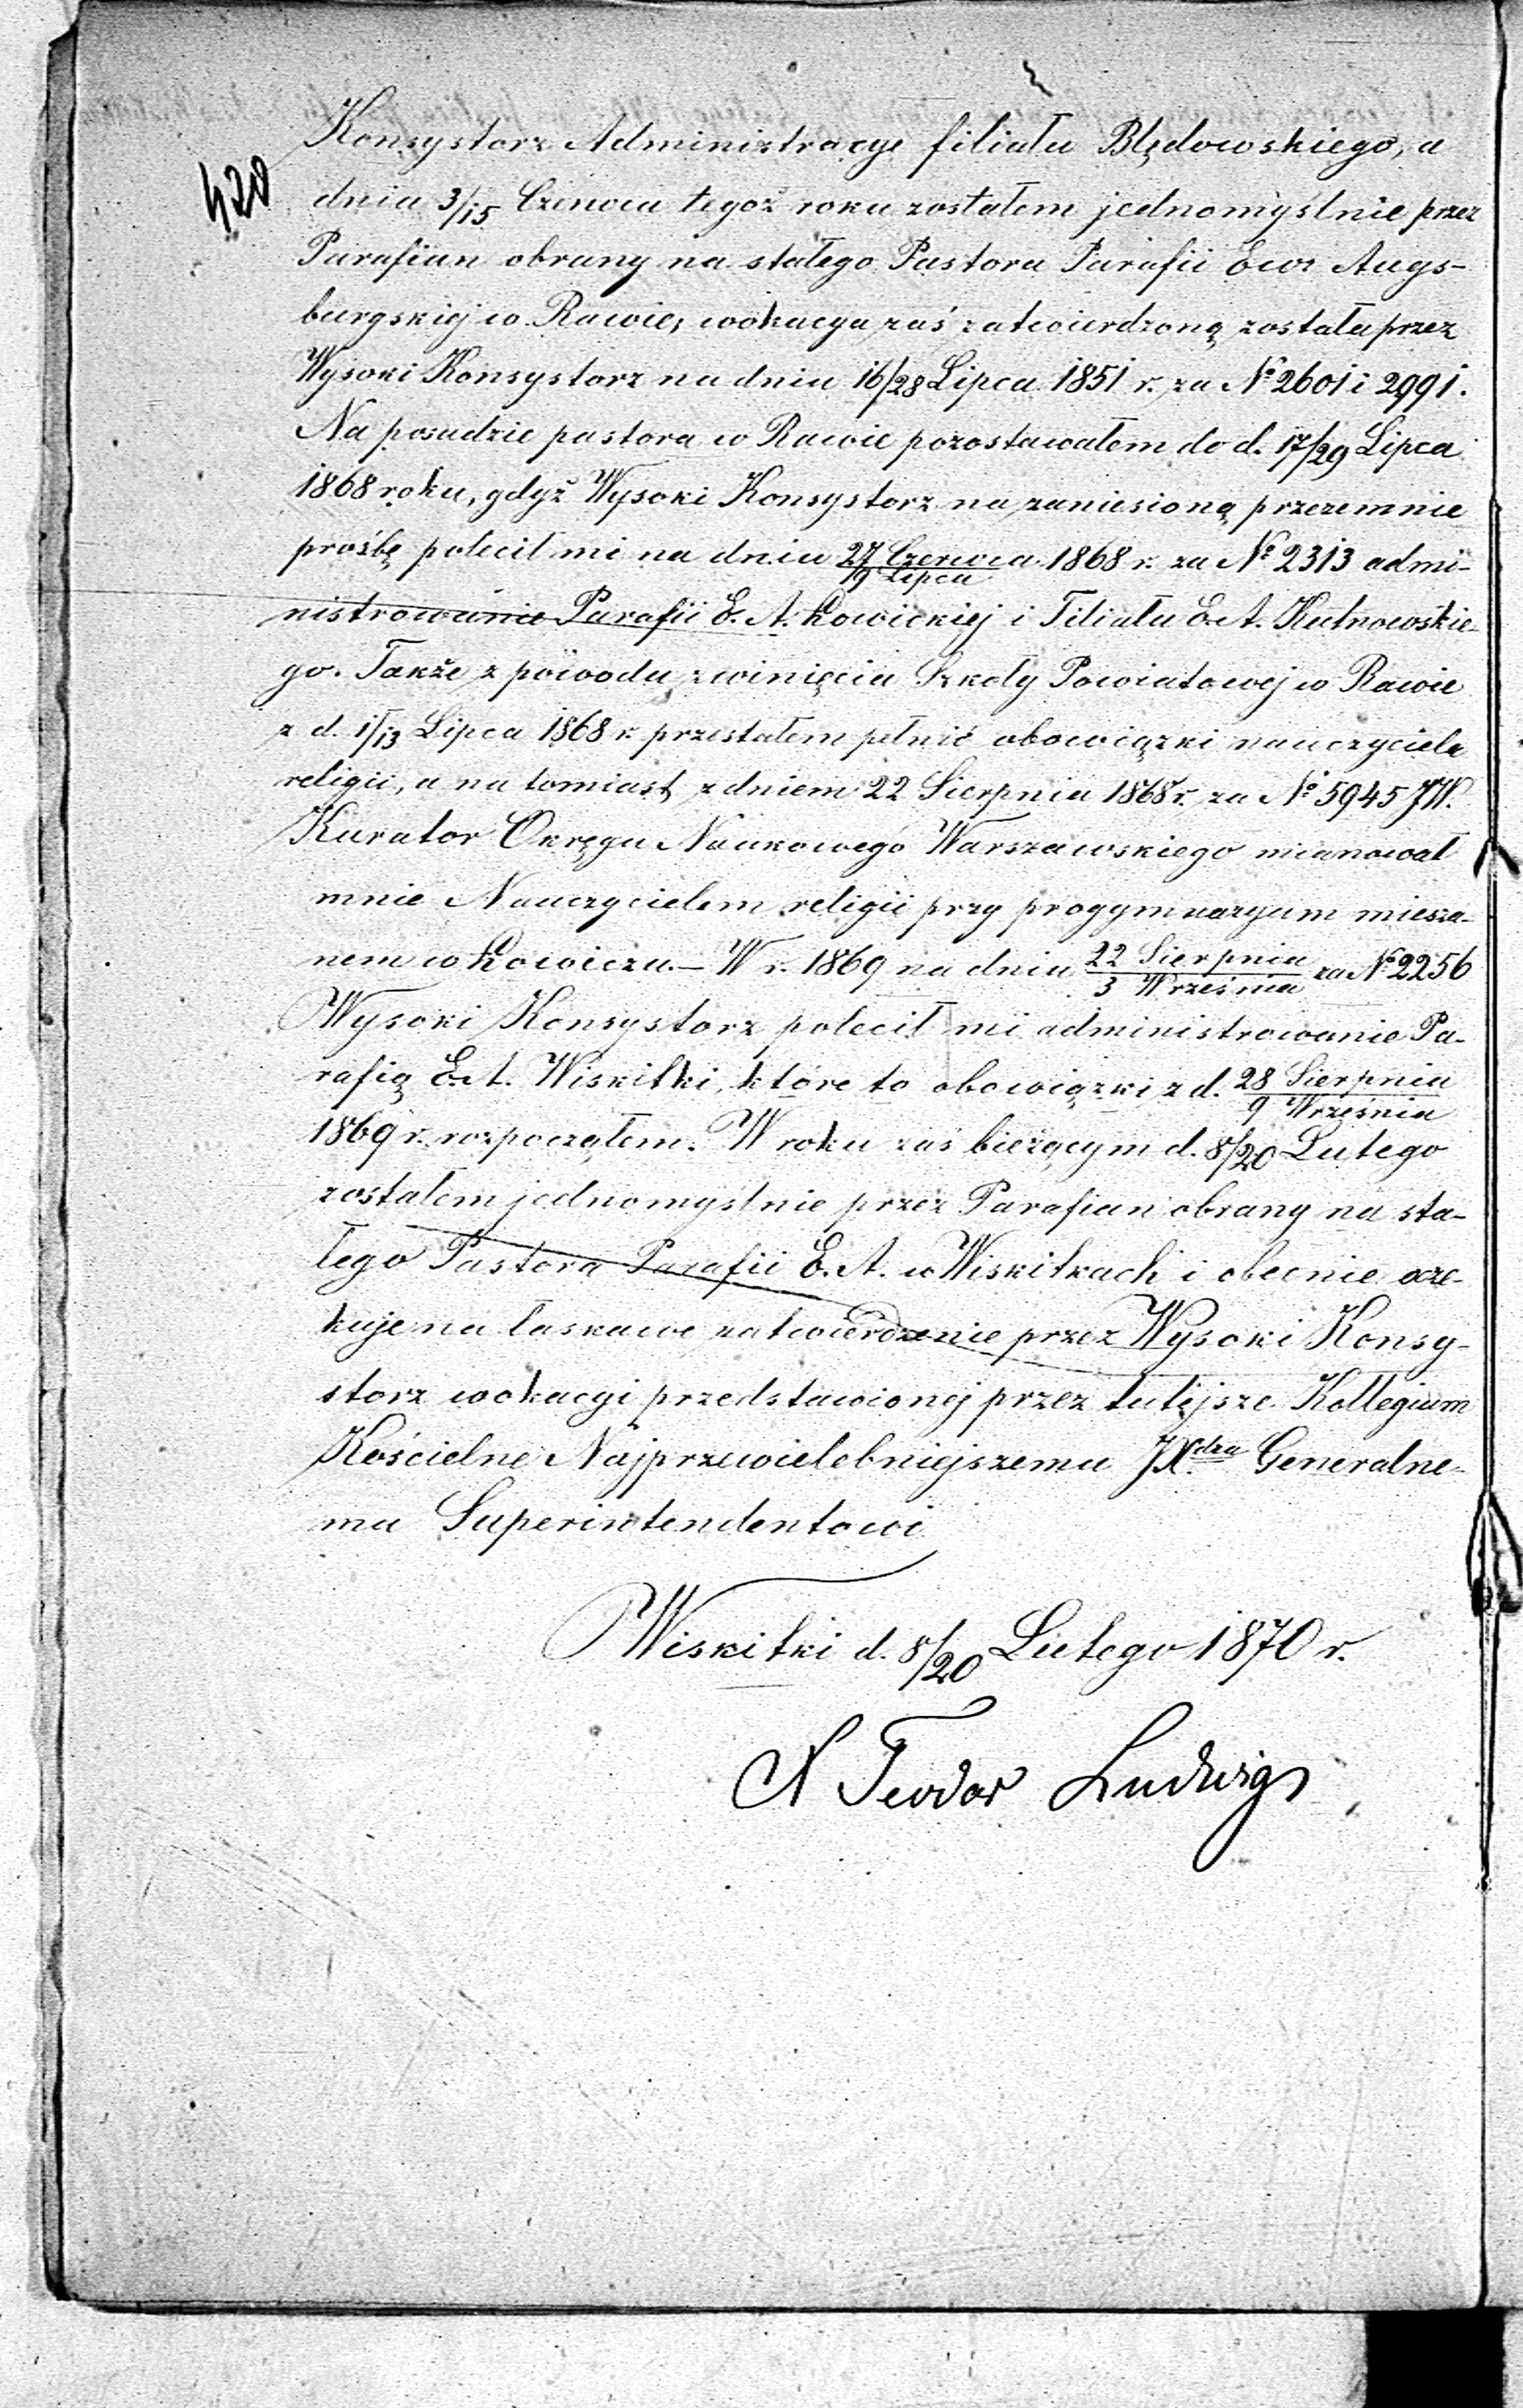 Konsystorz Administracye filiału Błędowskiego, a
420
dnia 3/15 Czerwca tegoż roku zostałem jednomyślnie przez
Parafian obrany na stałego Pastora Parafii Ew: Augs-
burgskiej w Rawie, wokacya zaś zatwierdzoną została przez
Wysoki Konsystorz na dniu 16/28 Lipca 1851 r. za № 2601 i 2991.
Na posadzie pastora w Rawie pozostawałem do d. 17/29 Lipca
1868 roku, gdyż Wysoki Konsystorz na zaniesioną przezemnie
prośbę polecił mi na dniu 27 Czerwca/9 Lipca 1868 r. za № 2313 admi-
nistrowanie Parafii E. A. Łowickiej i Filiału E. A. Kutnowskie-
go. Także z powodu zwinięcia Szkoły Powiatowej w Rawie
z d. 1/13 Lipca 1868 r. przestałem pełnić obowiązki nauczyciela
religii, a na tomiast z dniem 22 Sierpnia 1868 r. za № 5945 JW.
Kurator Okręgu Naukowego Warszawskiego mianował
mnie Nauczycielem religii przy progymnazyum miesza-
nem w Łowiczu. — W r. 1869 na dniu 22 Sierpnia/3 Września za № 2256
Wysoki Konsystorz polecił mi administrowanie Pa-
rafią E. A. Wiskitki, które to obowiązki z d. 28 Sierpnia/9 Września
1869 r. rozpocząłem. W roku zaś bieżącym d. 8/20 Lutego
zostałem jednomyślnie przez Parafian obrany na sta-
łego Pastora Parafii E. A. w Wiskitkach i obecnie ocze-
kuje na łaskawe zatwierdzenie przez Wysoki Konsy-
storz wokacyi przedstawionej przez tutejsze Kollegium
Kościelne Najprzewielebniejszemu JXdzu Generalne-
mu Superintendentowi
Wiskitki d. 8/20 Lutego 1870 r.
X Teodor Ludwig